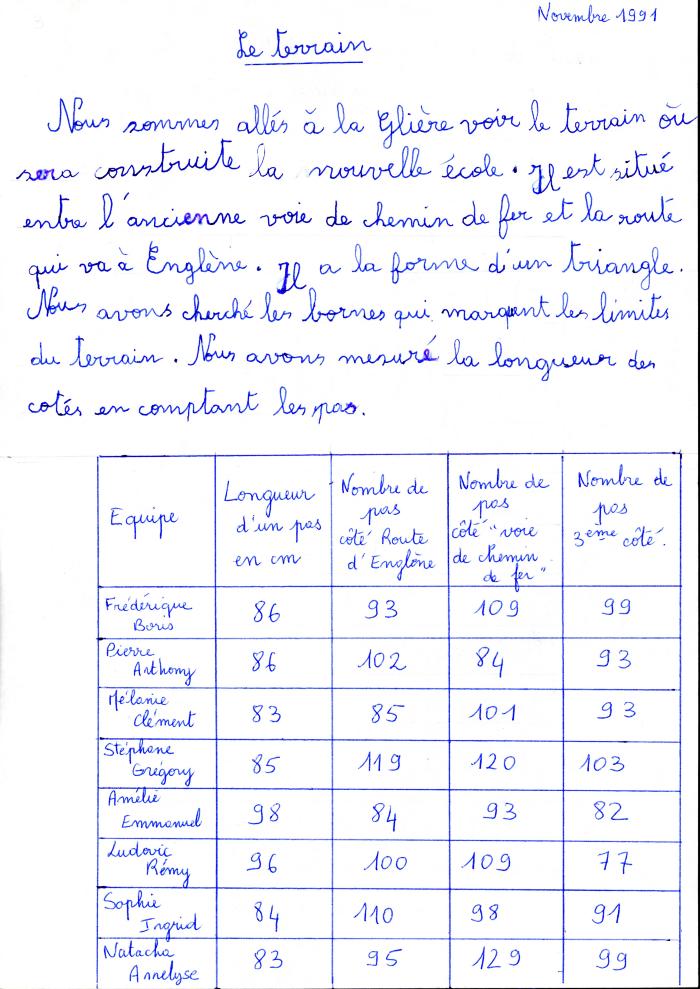 Novembre 1991
Le terrain
Nous sommes allés à la Glière voir le terrain où
sera construite la nouvelle école. Il est situé
entre l'ancienne voie de chemin de fer et la route
qui va à Englène. Il a la forme d'un triangle.
Nous avons cherché les bornes qui marquent les limites
du terrain. Nous avons mesuré la longueur des
cotés en comptant les pas.
Equipe
Longueur
d'un pas
en cm
Nombre de
pas
côté Route
d'Englène
Nombre de
pas
côté "voie
de chemin
de fer"
Nombre de
pas
3ème côté.
Frédérique
Boris
86
93
109
99
Pierre
Anthony
86
102
84
93
Mélanie
Clément
83
85
101
93
Stéphane
Grégory
85
119
120
103
Amélie
Emmanuel
98
84
93
82
Ludovic
Rémy
96
100
109
77
Sophie
Ingrid
84
110
98
91
Natacha
Annelyse
83
95
129
99